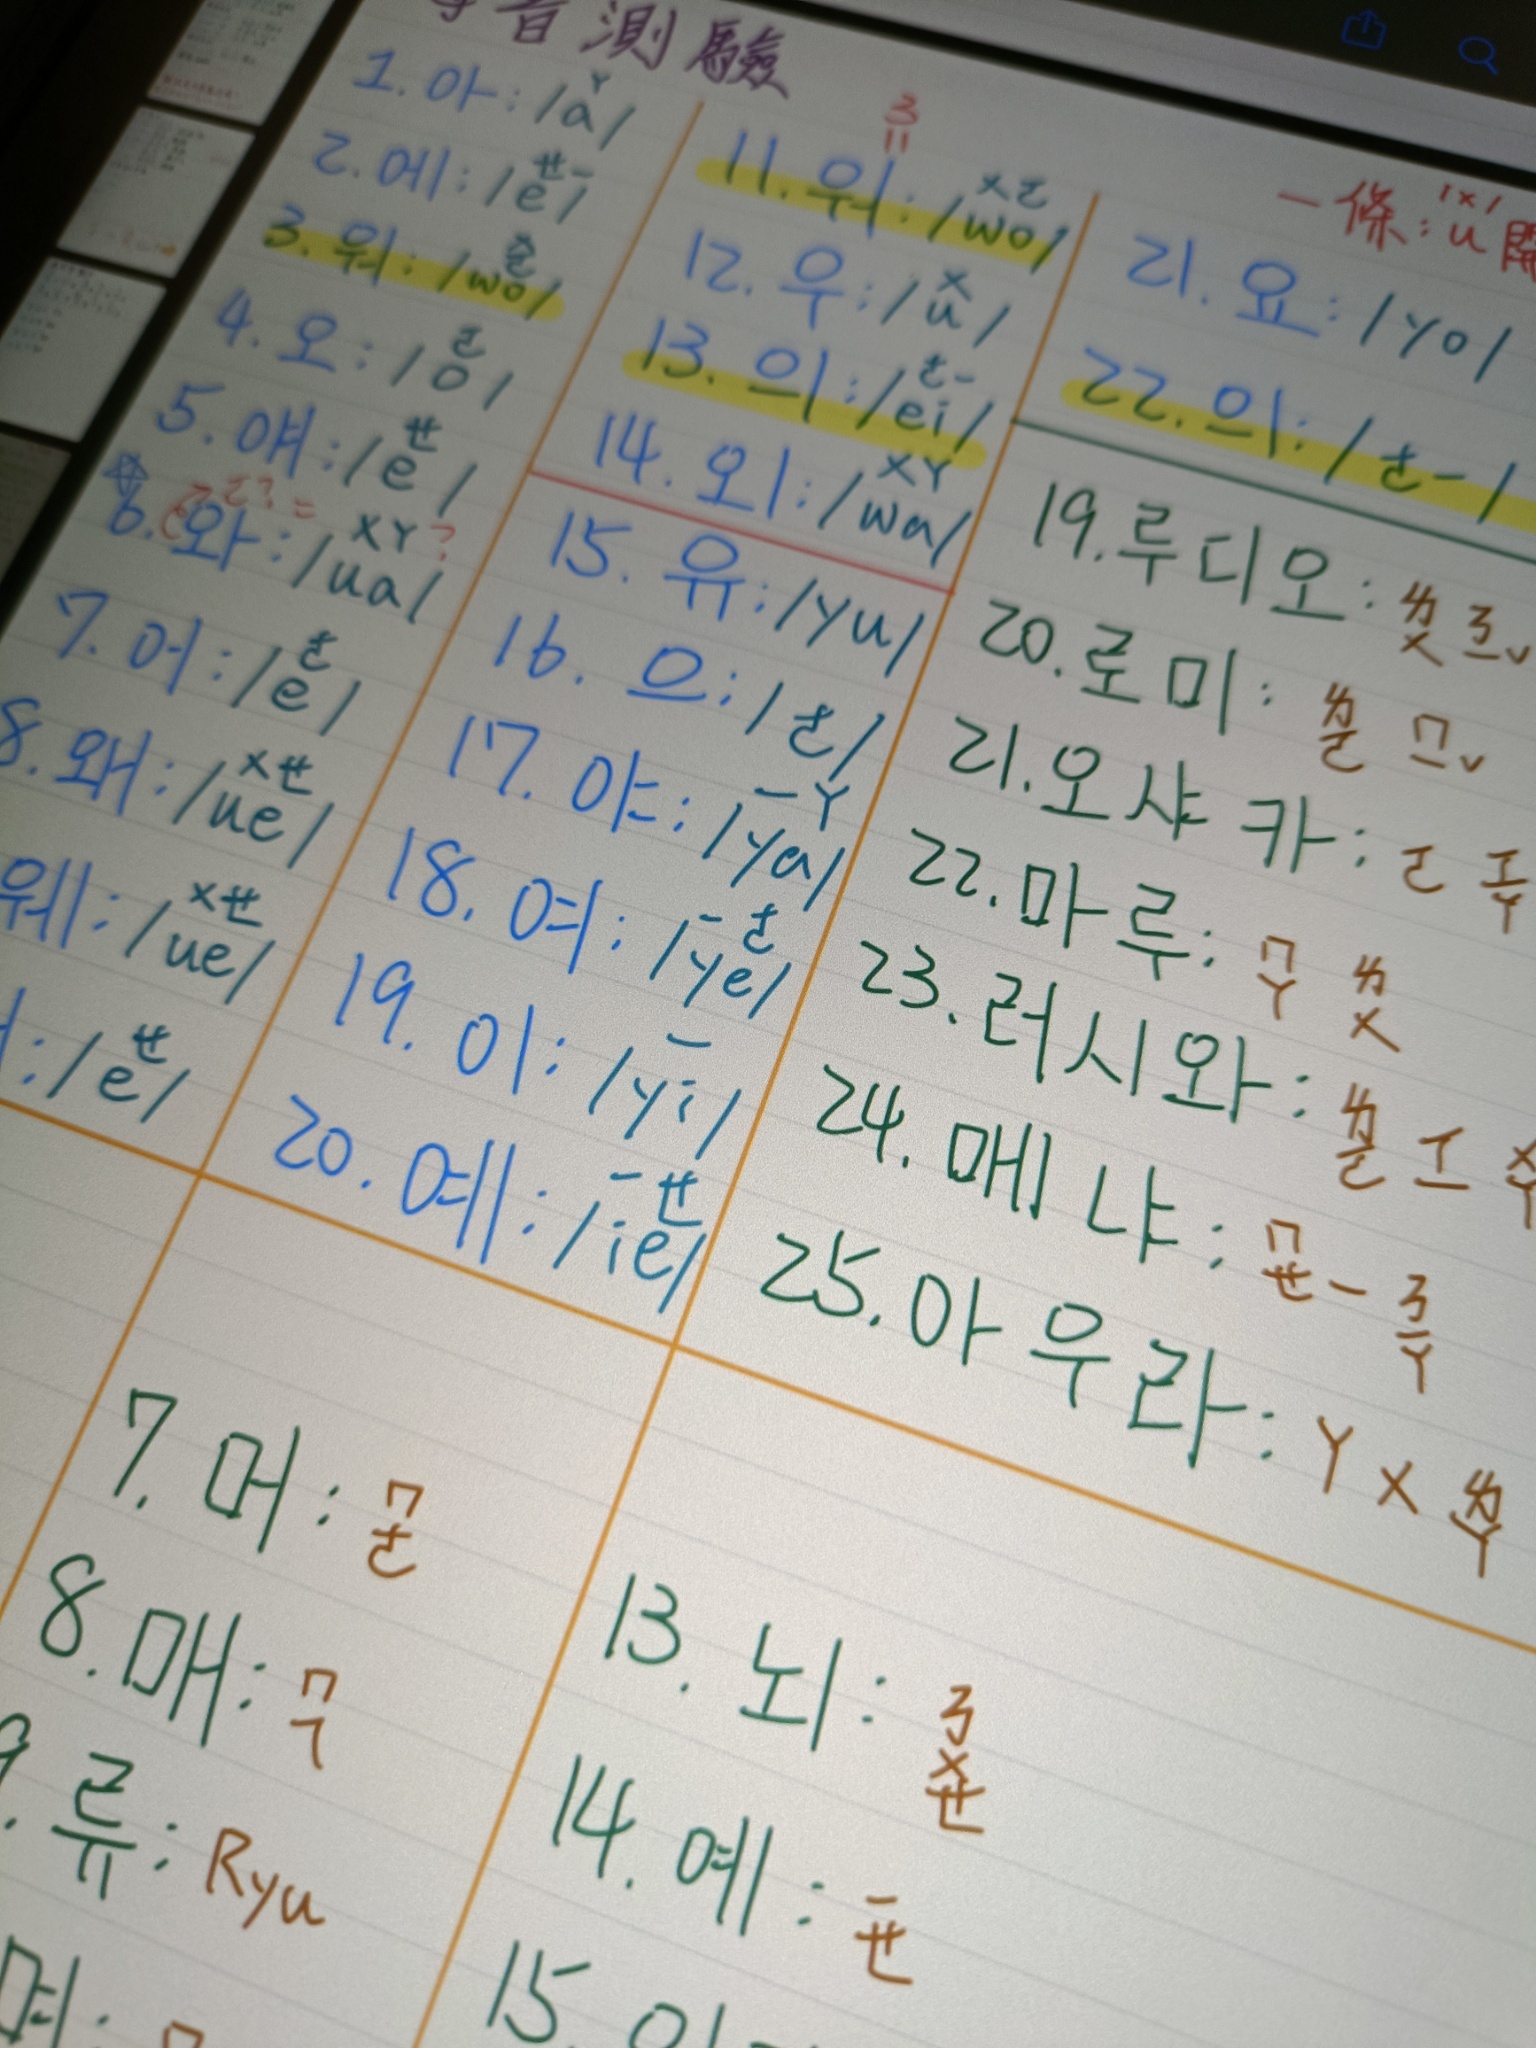 音測驗
1. 아: /a/ ㄚ
2. 에: /e/ ㄝㄧ
3. 워: /wo/
4. 오: /o/ ㄛ
5. 얘: /e/ ㄝ
6. 와: /ua/ ㄨㄚ?
7. 어: /e/ ㄜ
8. 왜: /ue/ ㄨㄝ
웨: /ue/ ㄨㄝ
: /e/ ㄝ
ㄋ
11. 워: /wo/ ㄨㄛ
12. 우: /u/ ㄨ
13. 의: /ei/ ㄜㄧ
14. 외: /wa/ ㄨㄚ
15. 유: /yu/
16. 으: /ㄜ/
17. 야: /ya/ ㄧㄚ
18. 여: /ye/ ㄧㄜ
19. 이: /yi/ ㄧ
20. 예: /ie/ ㄧㄝ
一條: u /ㄨ/ 開
21. 요: /yo/
22. 의: /ㄜㄧ/
19. 루디오: ㄌㄨ ㄋㄧˇ
20. 로미: ㄌㄛ ㄇㄧˇ
21. 오샤카: ㄛ ㄒㄧㄚ
22. 마루: ㄇㄚ ㄌㄨ
23. 러시와: ㄌㄛ ㄒㄧ ㄨㄚ
24. 메냐: ㄇㄝㄧ ㄋㄧㄚ
25. 아우라: ㄚ ㄨ ㄌㄚ
7. 머: ㄇㄜ
8. 매: ㄇㄟ
9. 류: Ryu
며:
13. 뇌: ㄋㄨㄝ
14. 예: ㄧㄝ
15.